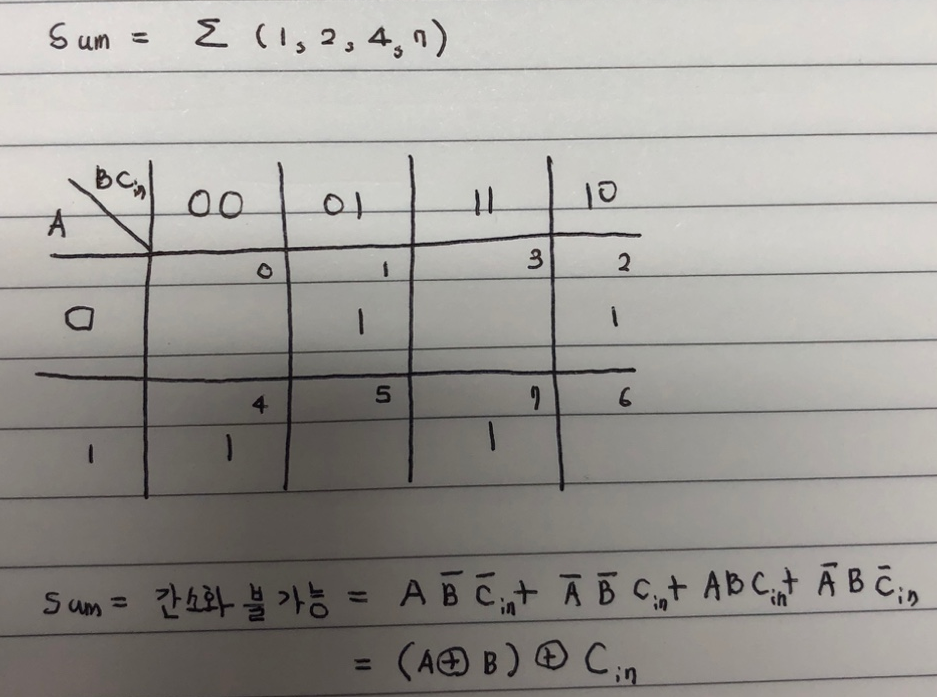 Sum = Σ (1, 2, 4, 7)
A BCin 00 01 11 10
0 1 3 2
0 1 1
4 5 7 6
1 1 1
Sum = 간소화 불가능 = A B̅ C̅in + A̅ B̅ Cin + ABCin + A̅ B C̅in
= (A⊕B) ⊕ Cin